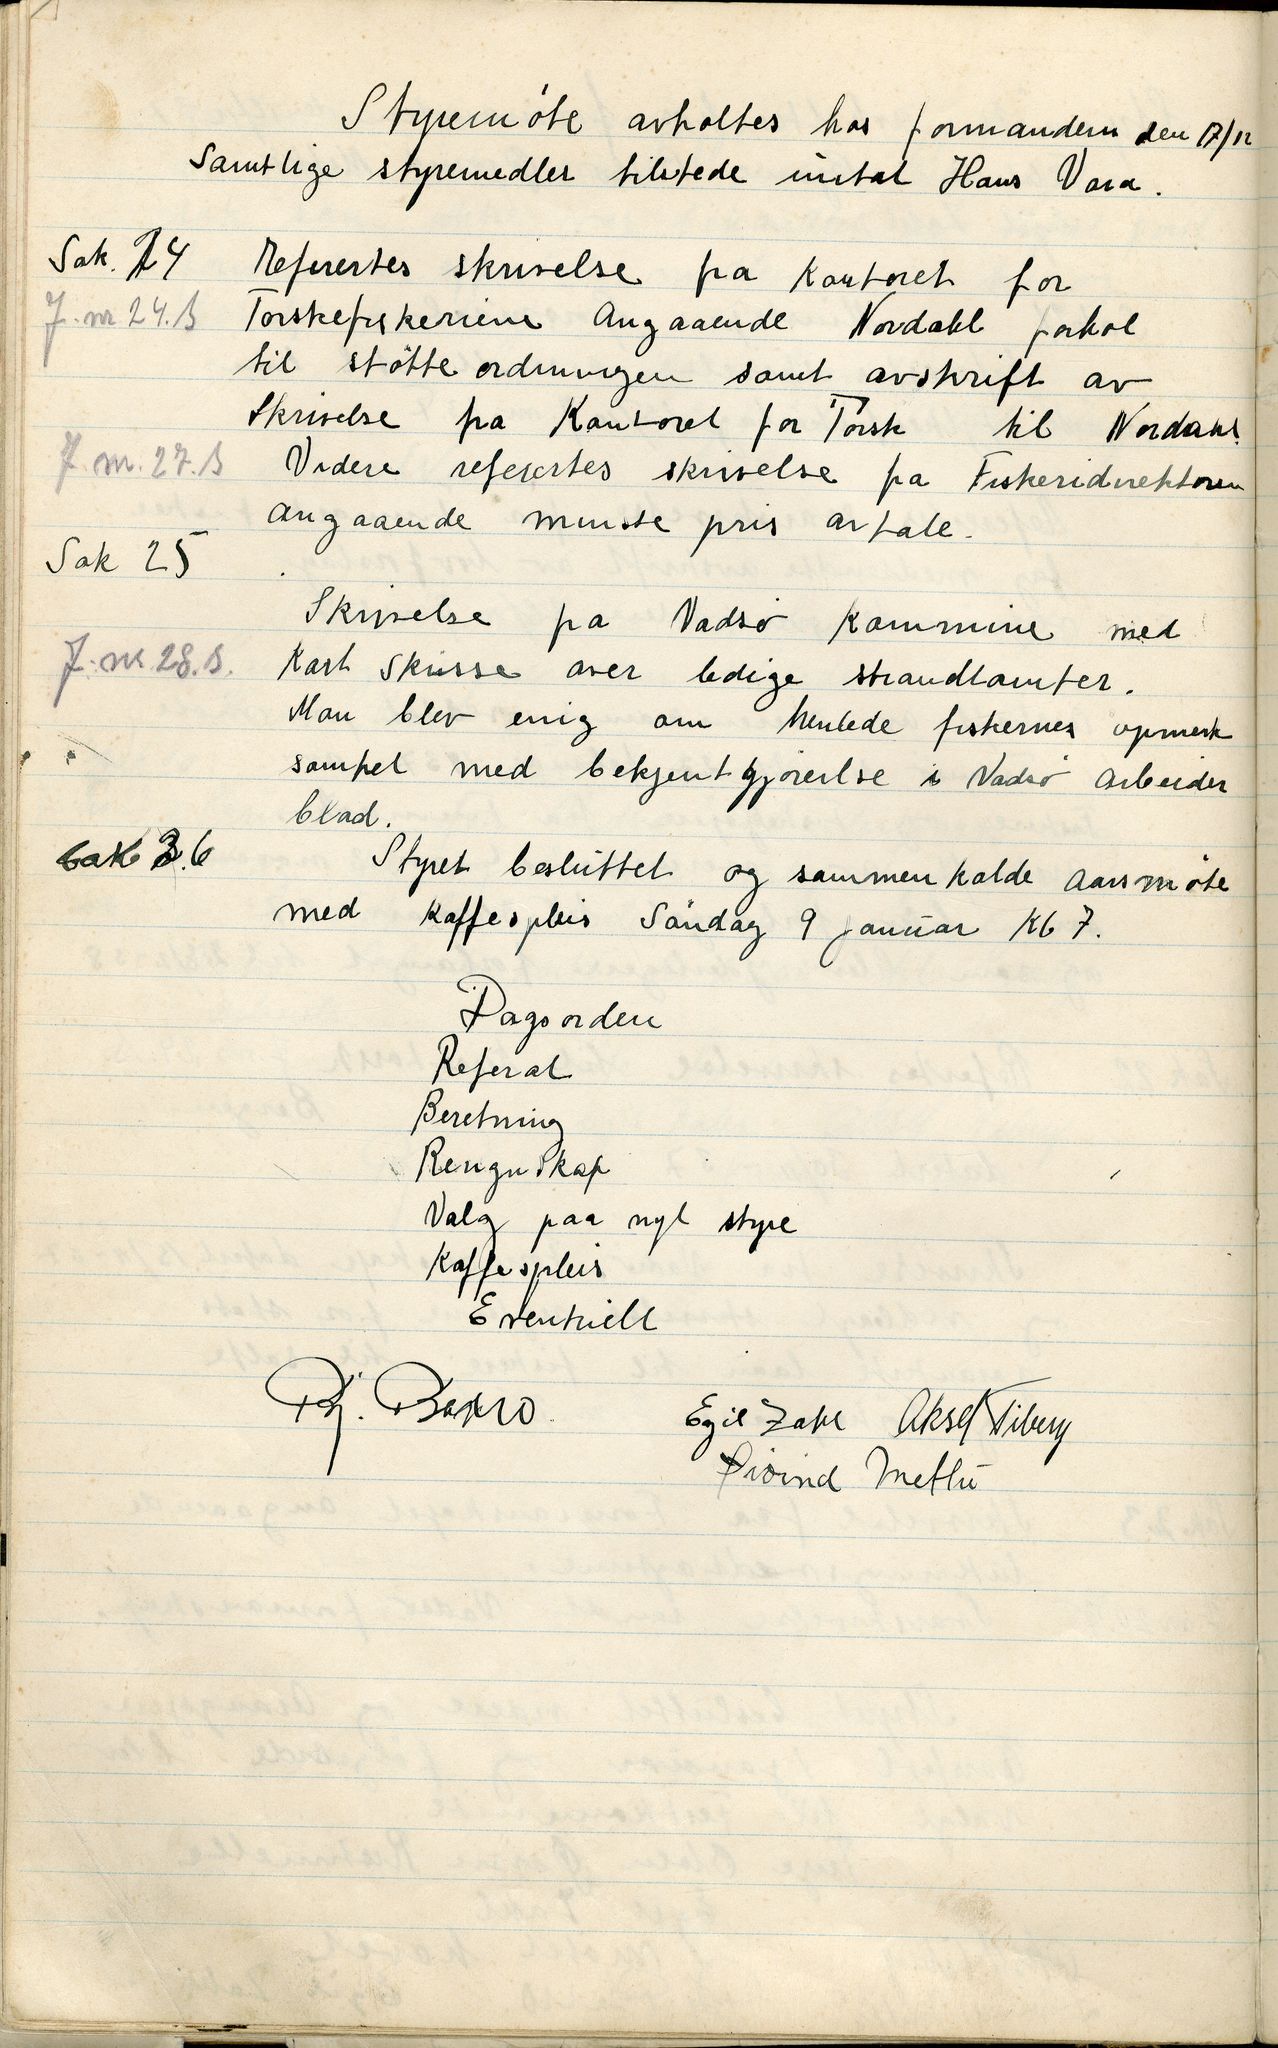 Styremöte avholtes hos formandern den 17/12
Samtlige styremedler tilstede untat Hans Vara.
Sak. 24 Referertes skrivelse fra Kontoret for
J. nr 24. B Torskefiskeriene Angaaende Nordahl forhol
til stötte ordningen samt avskrift av
Skrivelse fra Kontoret for Torsk til Nordahl.
J. nr. 27. B Videre referertes skrivelse fra Fiskeridirektoren
angaaende minste pris avtale.
Sak 25
Skrivelse fra Vadsö Kommune med
J. nr 28. B. Kart Skisse over ledige strandtomter.
Man blev enig om henlede fiskernes opmerk
somhet med bekjentgjörelse i Vadsö Arbeider
blad.
Sak 26 Styret besluttet og sammenkalde Aarsmöte
med Kaffespleis Söndag 9 januar Kl 7.
Dagsorden
Referat
Beretning
Rengnskap
Valg paa nyt styre
Kaffespleis
Eventuell
Egil Zahl Aksel Tiberg
Öivind